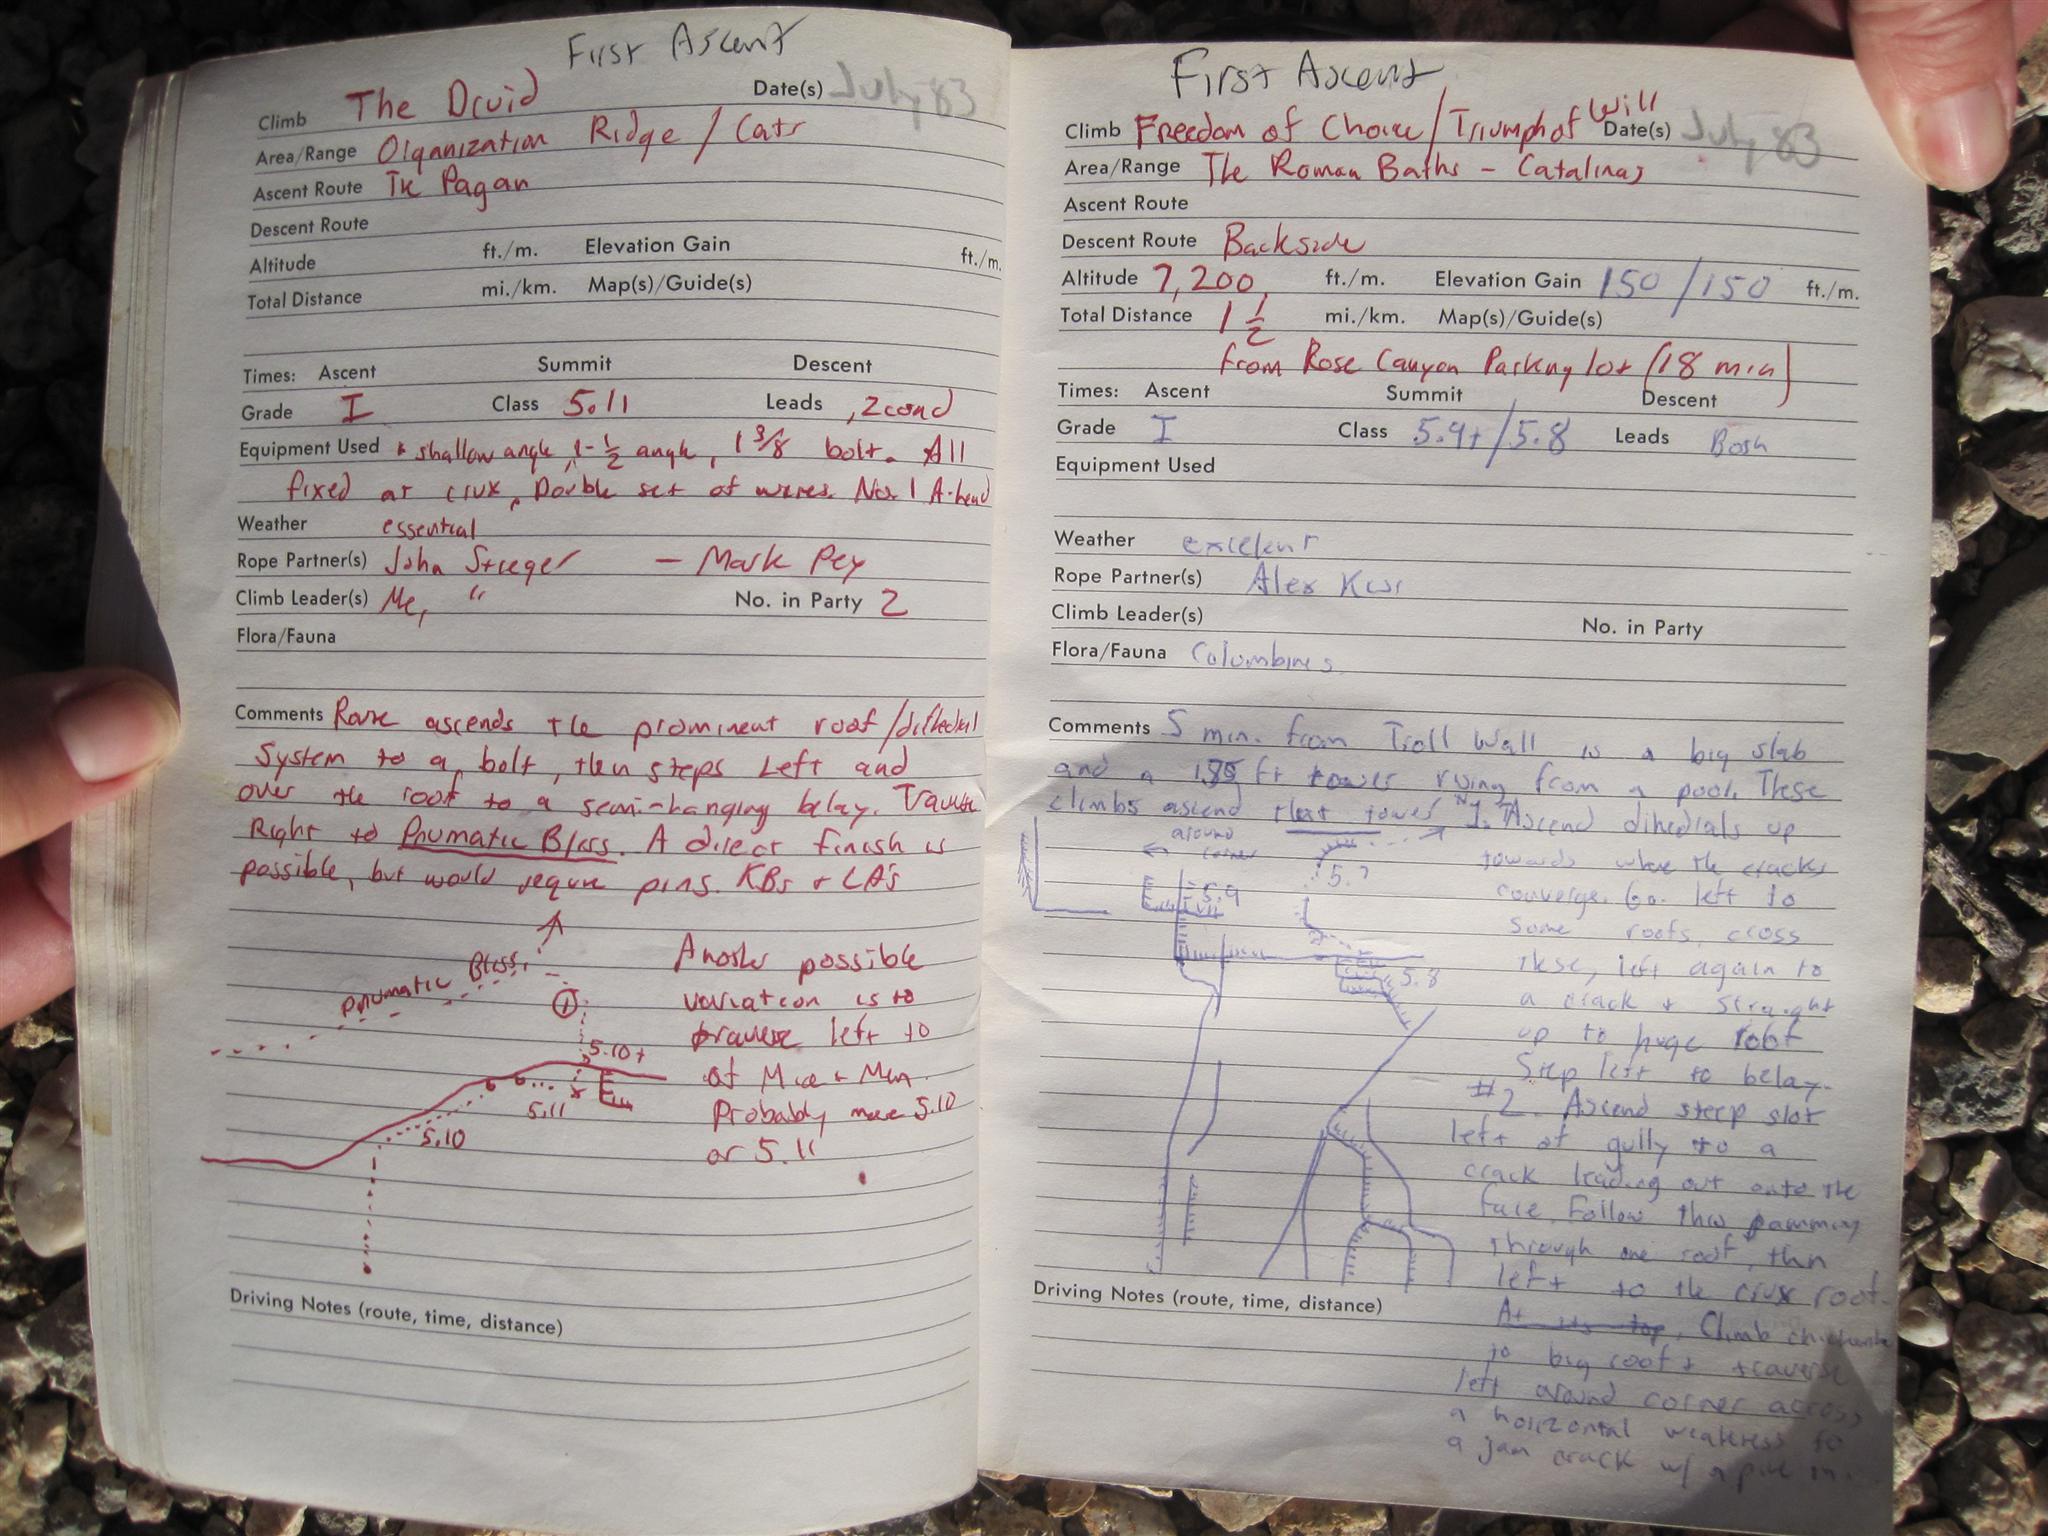 First Ascent
Climb The Druid Date(s) July 83
Area/Range Organization Ridge / Cats
Ascent Route The Pagan
Descent Route
Altitude ft./m. Elevation Gain ft./m.
Total Distance mi./km. Map(s)/Guide(s)
Times: Ascent Summit Descent
Grade I Class 5.11 Leads , 2cond
Equipment Used shallow angle, 1-½ angle, 1 3/8 bolt. All
fixed at crux, Double set of wires. No. 1 A-head
Weather essential
Rope Partner(s) John Steiger — Mark
Climb Leader(s) Me, " No. in Party 2
Flora/Fauna
Comments Route ascends the prominent roof/dihedral
System to a bolt, then steps Left and
over the roof to a semi-hanging belay. Traverse
Right to Pnumatic Bliss. A direct finish is
possible, but would require pins. KBs + LA's
Pnumatic Bliss
1
5.10+
5.11
5.10
Another possible
variation is to
traverse left to
of Mice + Men.
Probably more 5.10
or 5.11
Driving Notes (route, time, distance)
First Ascent
Climb Freedom of Choice/Triumph of Will Date(s) July 83
Area/Range The Roman Baths - Catalinas
Ascent Route
Descent Route Backside
Altitude 7,200 ft./m. Elevation Gain 150/150 ft./m.
Total Distance 1 ½ mi./km. Map(s)/Guide(s)
from Rose Canyon Parking lot (18 min)
Times: Ascent Summit Descent
Grade I Class 5.9+/5.8 Leads Both
Equipment Used
Weather excelent
Rope Partner(s) Alex
Climb Leader(s) No. in Party
Flora/Fauna Columbines
Comments 5 min. from Troll Wall is a big slab
and a ft tower rising from a pool. These
climbs ascend that tower. #1. Ascend dihedrals up
towards where the cracks
converge. Go left to
some roofs, cross
these, left again to
a crack + straight
up to huge roof
Step left to belay.
#2. Ascend steep slot
left of gully to a
crack leading out onto the
face. Follow this
through one roof, then
left to the crux roof.
At its top, Climb
to big roof + traverse
left around corner across
a horizontal weakness to
a jam crack w/ a in.
around
corner
5.9
5.7
5.8
Driving Notes (route, time, distance)